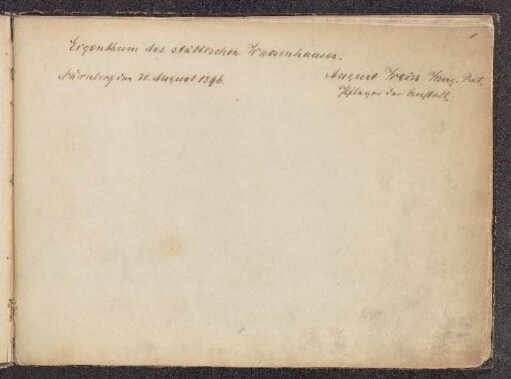 1
Eigenthum des städtischen Waisenhauses.
Nürnberg den 21. August 1896. August Weiss Mag. Rat,
Pfleger der Anstalt.